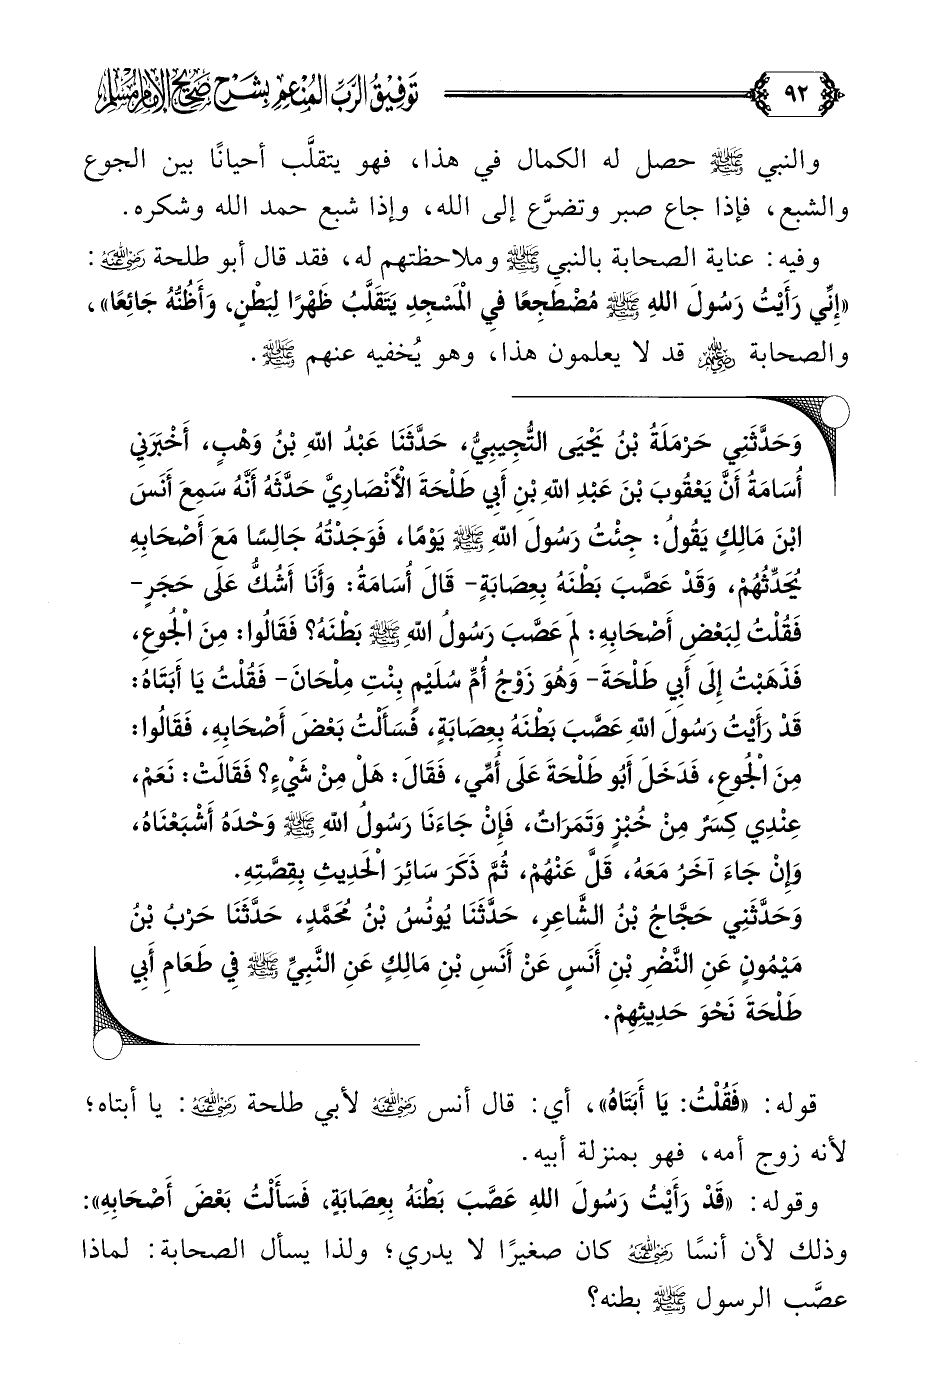 ٩٢
توفيق الرب المنعم بشرح صحيح الإمام مسلم
والنبي ﷺ حصل له الكمال في هذا، فهو يتقلَّب أحيانًا بين الجوع
والشبع، فإذا جاع صبر وتضرَّع إلى الله، وإذا شبع حمد الله وشكره.
وفيه: عناية الصحابة بالنبي ﷺ وملاحظتهم له، فقد قال أبو طلحة رضي الله عنه:
«إِنِّي رَأَيْتُ رَسُولَ اللهِ ﷺ مُضْطَجِعًا فِي الْمَسْجِدِ يَتَقَلَّبُ ظَهْرًا لِبَطْنٍ، وَأَظُنُّهُ جَائِعًا»،
والصحابة رضي الله عنهم قد لا يعلمون هذا، وهو يُخفيه عنهم ﷺ.
وَحَدَّثَنِي حَرْمَلَةُ بْنُ يَحْيَى التُّجِيبِيُّ، حَدَّثَنَا عَبْدُ اللهِ بْنُ وَهْبٍ، أَخْبَرَنِي
أُسَامَةُ أَنَّ يَعْقُوبَ بْنَ عَبْدِ اللهِ بْنِ أَبِي طَلْحَةَ الْأَنْصَارِيَّ حَدَّثَهُ أَنَّهُ سَمِعَ أَنَسَ
ابْنَ مَالِكٍ يَقُولُ: جِئْتُ رَسُولَ اللهِ ﷺ يَوْمًا، فَوَجَدْتُهُ جَالِسًا مَعَ أَصْحَابِهِ
يُحَدِّثُهُمْ، وَقَدْ عَصَّبَ بَطْنَهُ بِعِصَابَةٍ- قَالَ أُسَامَةُ: وَأَنَا أَشُكُّ عَلَى حَجَرٍ-
فَقُلْتُ لِبَعْضِ أَصْحَابِهِ: لِمَ عَصَّبَ رَسُولُ اللهِ ﷺ بَطْنَهُ؟ فَقَالُوا: مِنَ الْجُوعِ،
فَذَهَبْتُ إِلَى أَبِي طَلْحَةَ- وَهُوَ زَوْجُ أُمِّ سُلَيْمٍ بِنْتِ مِلْحَانَ- فَقُلْتُ يَا أَبَتَاهُ:
قَدْ رَأَيْتُ رَسُولَ اللهِ عَصَّبَ بَطْنَهُ بِعِصَابَةٍ، فَسَأَلْتُ بَعْضَ أَصْحَابِهِ، فَقَالُوا:
مِنَ الْجُوعِ، فَدَخَلَ أَبُو طَلْحَةَ عَلَى أُمِّي، فَقَالَ: هَلْ مِنْ شَيْءٍ؟ فَقَالَتْ: نَعَمْ،
عِنْدِي كِسَرٌ مِنْ خُبْزٍ وَتَمَرَاتٌ، فَإِنْ جَاءَنَا رَسُولُ اللهِ ﷺ وَحْدَهُ أَشْبَعْنَاهُ،
وَإِنْ جَاءَ آخَرُ مَعَهُ، قَلَّ عَنْهُمْ، ثُمَّ ذَكَرَ سَائِرَ الْحَدِيثِ بِقِصَّتِهِ.
وَحَدَّثَنِي حَجَّاجُ بْنُ الشَّاعِرِ، حَدَّثَنَا يُونُسُ بْنُ مُحَمَّدٍ، حَدَّثَنَا حَرْبُ بْنُ
مَيْمُونٍ عَنِ النَّضْرِ بْنِ أَنَسٍ عَنْ أَنَسِ بْنِ مَالِكٍ عَنِ النَّبِيِّ ﷺ فِي طَعَامِ أَبِي
طَلْحَةَ نَحْوَ حَدِيثِهِمْ.
قوله: «فَقُلْتُ: يَا أَبَتَاهُ»، أي: قال أنس رضي الله عنه لأبي طلحة رضي الله عنه: يا أبتاه؛
لأنه زوج أمه، فهو بمنزلة أبيه.
وقوله: «قَدْ رَأَيْتُ رَسُولَ اللهِ عَصَّبَ بَطْنَهُ بِعِصَابَةٍ، فَسَأَلْتُ بَعْضَ أَصْحَابِهِ»:
وذلك لأن أنسًا رضي الله عنه كان صغيرًا لا يدري؛ ولذا يسأل الصحابة: لماذا
عصَّب الرسول ﷺ بطنه؟